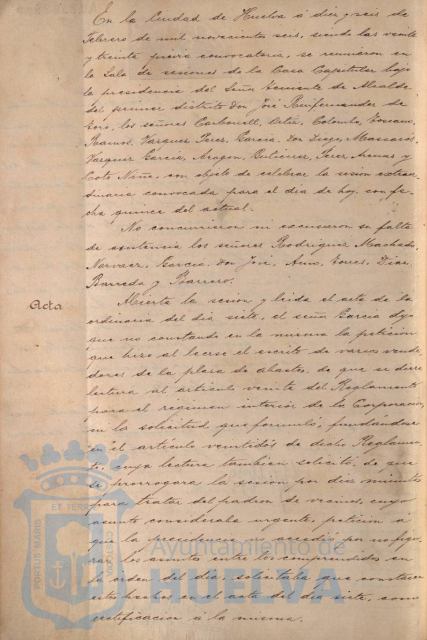 En la Ciudad de Huelva á diez y seis de
Febrero de mil novecientos seis, siendo las veinte
y treinta, previa convocatoria, se reunieron en
la Sala de sesiones de la Casa Capitular bajo
la presidencia del Señor Teniente de Alcalde
del primer distrito Don José
los señores Carbonell, Ortiz, Colombo, Toscano,
Ramos, Vázquez Pérez, García Don Diego, Massarós,
Vázquez García, Aragón, Gutiérrez, Pérez Arenas y
Coto Núñez, con objeto de celebrar la sesión extraor-
dinaria convocada para el día de hoy, con fe-
cha quince del actual.
No concurrieron ni excusaron su falta
de asistencia los señores Rodríguez Machado,
Narvaez, García Don José, Torres, Díaz,
Barreda y Barrero.
Acta
Abierta la sesión y leída el acta de la
ordinaria del día siete, el señor García dijo
que no constando en la misma la petición
que hizo al leerse el escrito de varios vende-
dores de la plaza de abastos, de que se diera
lectura al artículo veinte del Reglamento
para el régimen interior de la Corporación,
en la solicitud que formuló, fundándose
en el artículo veintidós de dicho Reglamen-
to, cuya lectura también solicitó, de que
se prorrogara la sesión por diez minutos
para tratar del padrón de vecinos, cuyo
asunto consideraba urgente, petición á
que la presidencia no accedió por no figu-
rar los asuntos entre los comprendidos en
la orden del día, solicitaba que constaran
estos hechos en el acta del día siete, como
rectificación á la misma.
PORTUS MARIS
ET TERRAE
CUSTODIA
Ayuntamiento de
HUELVA